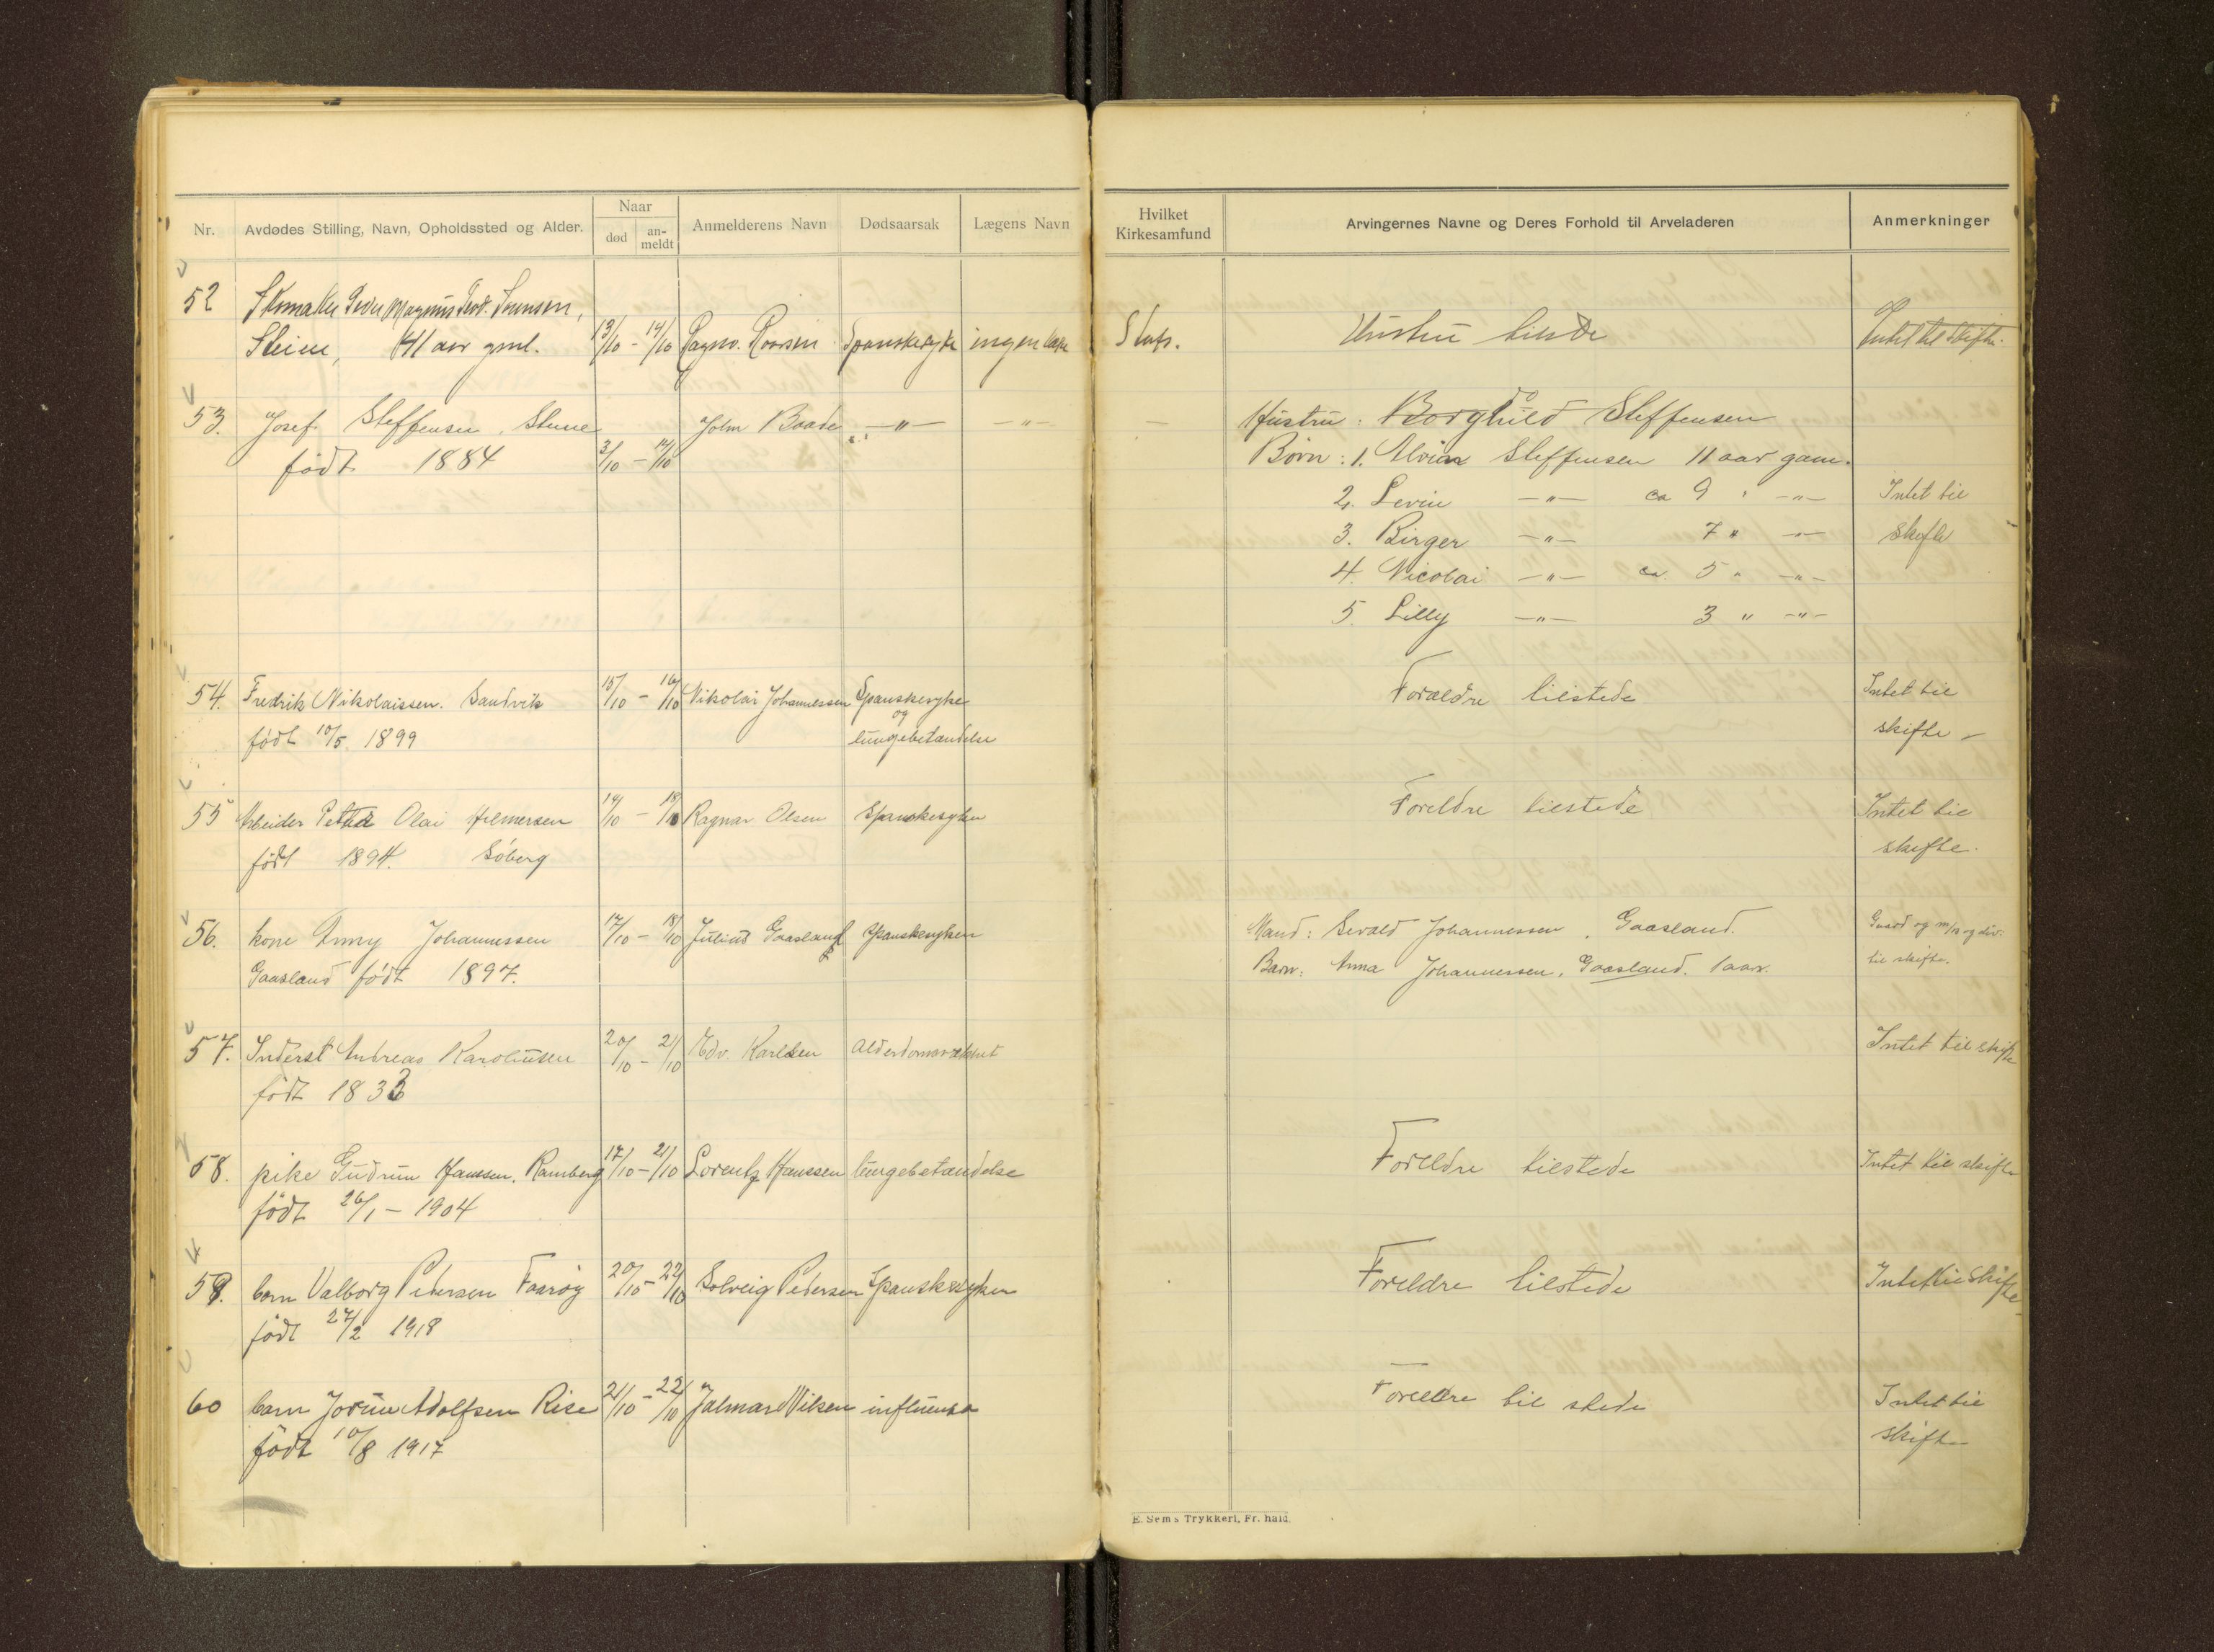 Nr.
Avdødes Stilling, Navn, Opholdssted og Alder.
Naar
død
an-
meldt
Anmelderens Navn
Dødsaarsak
Lægens Navn
Hvilket
Kirkesamfund
Arvingernes Navne og Deres Forhold til Arveladeren
Anmerkninger
52 Skomaker Peder Magnus
Steine, 41 aar gml. 13/10 - 14/10 Ragnv. Roarsen Spanskesyke ingen læge Stats. Hustru Intet til skifte.
53. Josef Steffensen, Stene John Baade —"— —"— — Hustru: Borghild Steffensen
født 1884 3/10 - 14/10 Børn: 1. Steffensen 11 aar gam.
2. Levin —"— ca 9 " —"— Intet til
3. Birger —"— 7 " —"— skifte
4. Nicolai —"— ca. 5 " —"—
5. Lilly —"— 3 " —"—
54. Fredrik Nikolaissen. Sandvik 15/10 - 16/10 Nikolai Johannessen Spanskesyke Forældre tilstede Intet til
og
født 10/5 1899 lungebetændelse skifte
55 Arbeider Olai Hilmersen 14/10 - 18/10 Ragnar Olsen Spanskesyken Foreldre tilstede Intet til
født 1894. Søberg skifte.
56. kone Anny Johannessen 17/10 - 18/10 Julius Gaasland Spanskesyken Mand: Sevald Johannessen, Gaasland. og m/b og div.
Gaasland født 1897. Barn: Anna Johannessen, Gaasland. 1 aar. til skifte.
57. Inderst Andreas Karoliussen 20/10 - 21/10 Edv. Karlsen Alderdomsvækket Intet til skifte
født 1833
58. pike Gudrun Hanssen, Ramberg 17/10 - 21/10 Lorentz Hanssen lungebetændelse Foreldre tilstede Intet til skifte
født 26/1 - 1904
59. barn Valborg Pedersen Faarøy 20/10 - 22/10 Solveig Pedersen Spanskesyken Foreldre tilstede Intet til skifte
født 27/2 1918
60 barn Jorun Adolfsen Rise 21/10 - 22/10 Jalmar Nilsen influensa Foreldre til stede Intet til
født 10/8 1917 skifte
E. Sems Trykkeri, Fr. hald.